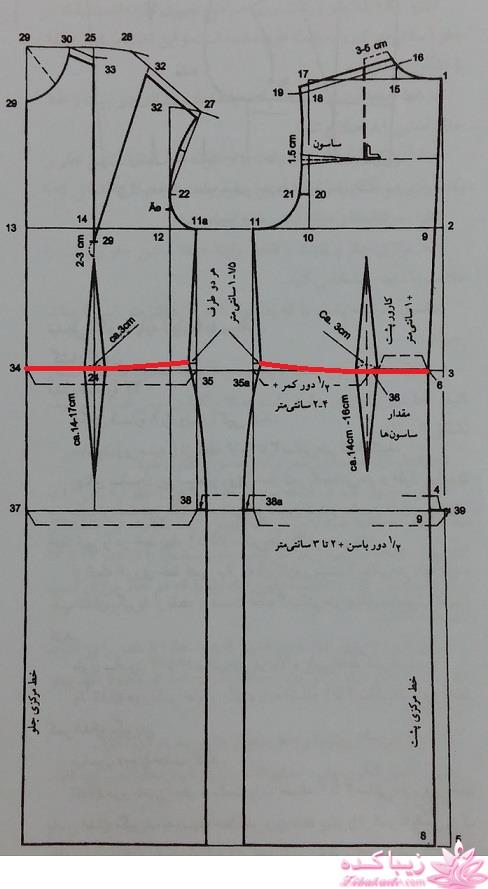 3-5 cm
29
30
25
28
16
33
32
17
15
1
19
18
29
32
27
ساسون
1.5 cm
22
21
20
Äe
13
14
11a
11
2
12
10
9
29
2-3 cm
هر دو طرف
۱-۱/۵ سانتی‌متر
ca.3cm
Ca. 3cm
کارور پشت
+۱ سانتی‌متر
34
3
24
35
35a
۱/۲ دور کمر +
۲-۴ سانتی‌متر
6
36
مقدار
ساسون‌ها
ca.14-17cm
ca.14cm -16cm
4
37
38
38a
39
9
۱/۲ دور باسن + ۲ تا ۳ سانتی‌متر
خط مرکزی جلو
خط مرکزی پشت
8
5
زیباکده